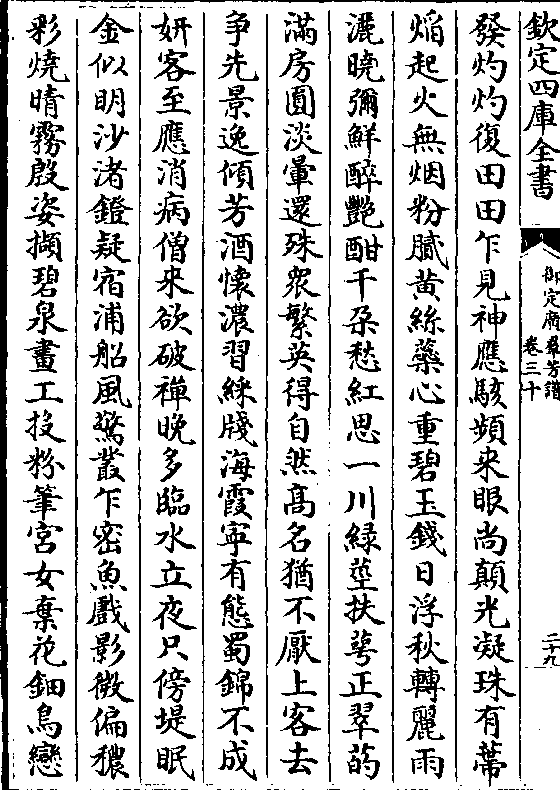 欽定四庫全書
御定廣羣芳譜
卷三十
二十九
發灼灼復田田乍見神應駭頻來眼尚顛光凝珠有蒂
焰起火無烟粉膩黃絲蘂心重碧玉錢日浮秋轉麗雨
灑曉彌鮮醉艷酣千朶愁紅思一川綠莖扶萼正翠菂
滿房圓淡暈還殊衆繁英得自然髙名猶不厭上客去
爭先景逸傾芳酒懷濃習綵牋海霞寜有態蜀錦不成
妍客至應消病僧來欲破禪晚多臨水立夜只傍堤眠
金似明沙渚鐙疑宿浦船風驚叢乍密魚戲影微偏穠
彩燒晴霧殷姿擷碧泉畫工投粉筆宫女棄花鈿鳥戀